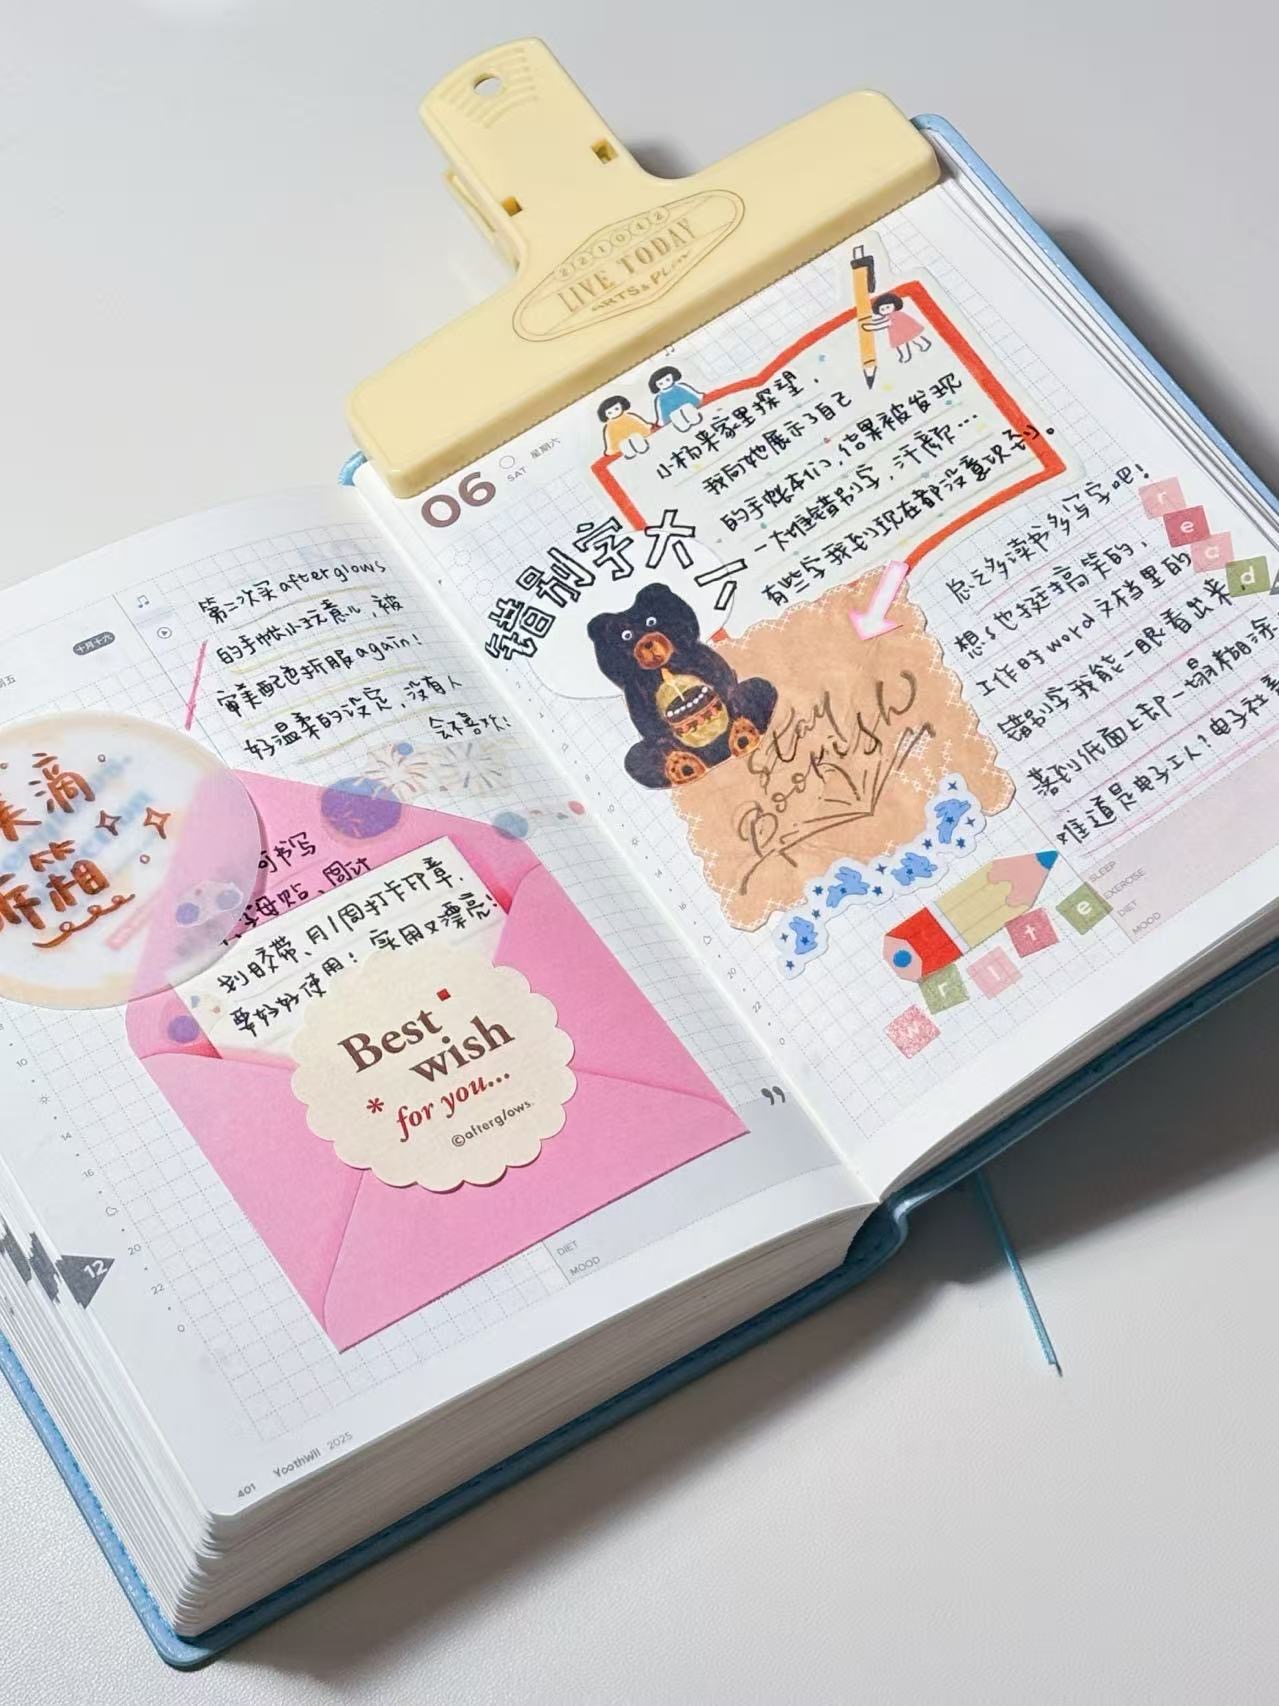 221042
LIVE TODAY
ARTS & PLAY
十月十六
第二次买afterglows
的手帐小玩意儿，被
审美配色折服again！
好温柔的设定，没有人
会不喜欢！
滴
可书写
划日胶带、月/周打卡印章，
要好好使用！实用又漂亮！
Best
wish
* for you...
©afterglows.
DIET
MOOD
10
14
16
20
22
0
12
401 YoothWill 2025
06
SAT
星期六
小杨来家里探望，
我向她展示了自己
的手账本们，结果被发现
一大堆错别字，汗颜…
有些字我到现在都没意识到。
错别字大
总之多读书多写字吧！
想想也挺搞笑的，
工作时word文档里的
错别字我能一眼看出来，
落到纸面上却一塌糊涂
难道是电子工人？电子社畜
read
Stay
Bookish
write
SLEEP
EXERCISE
DIET
MOOD